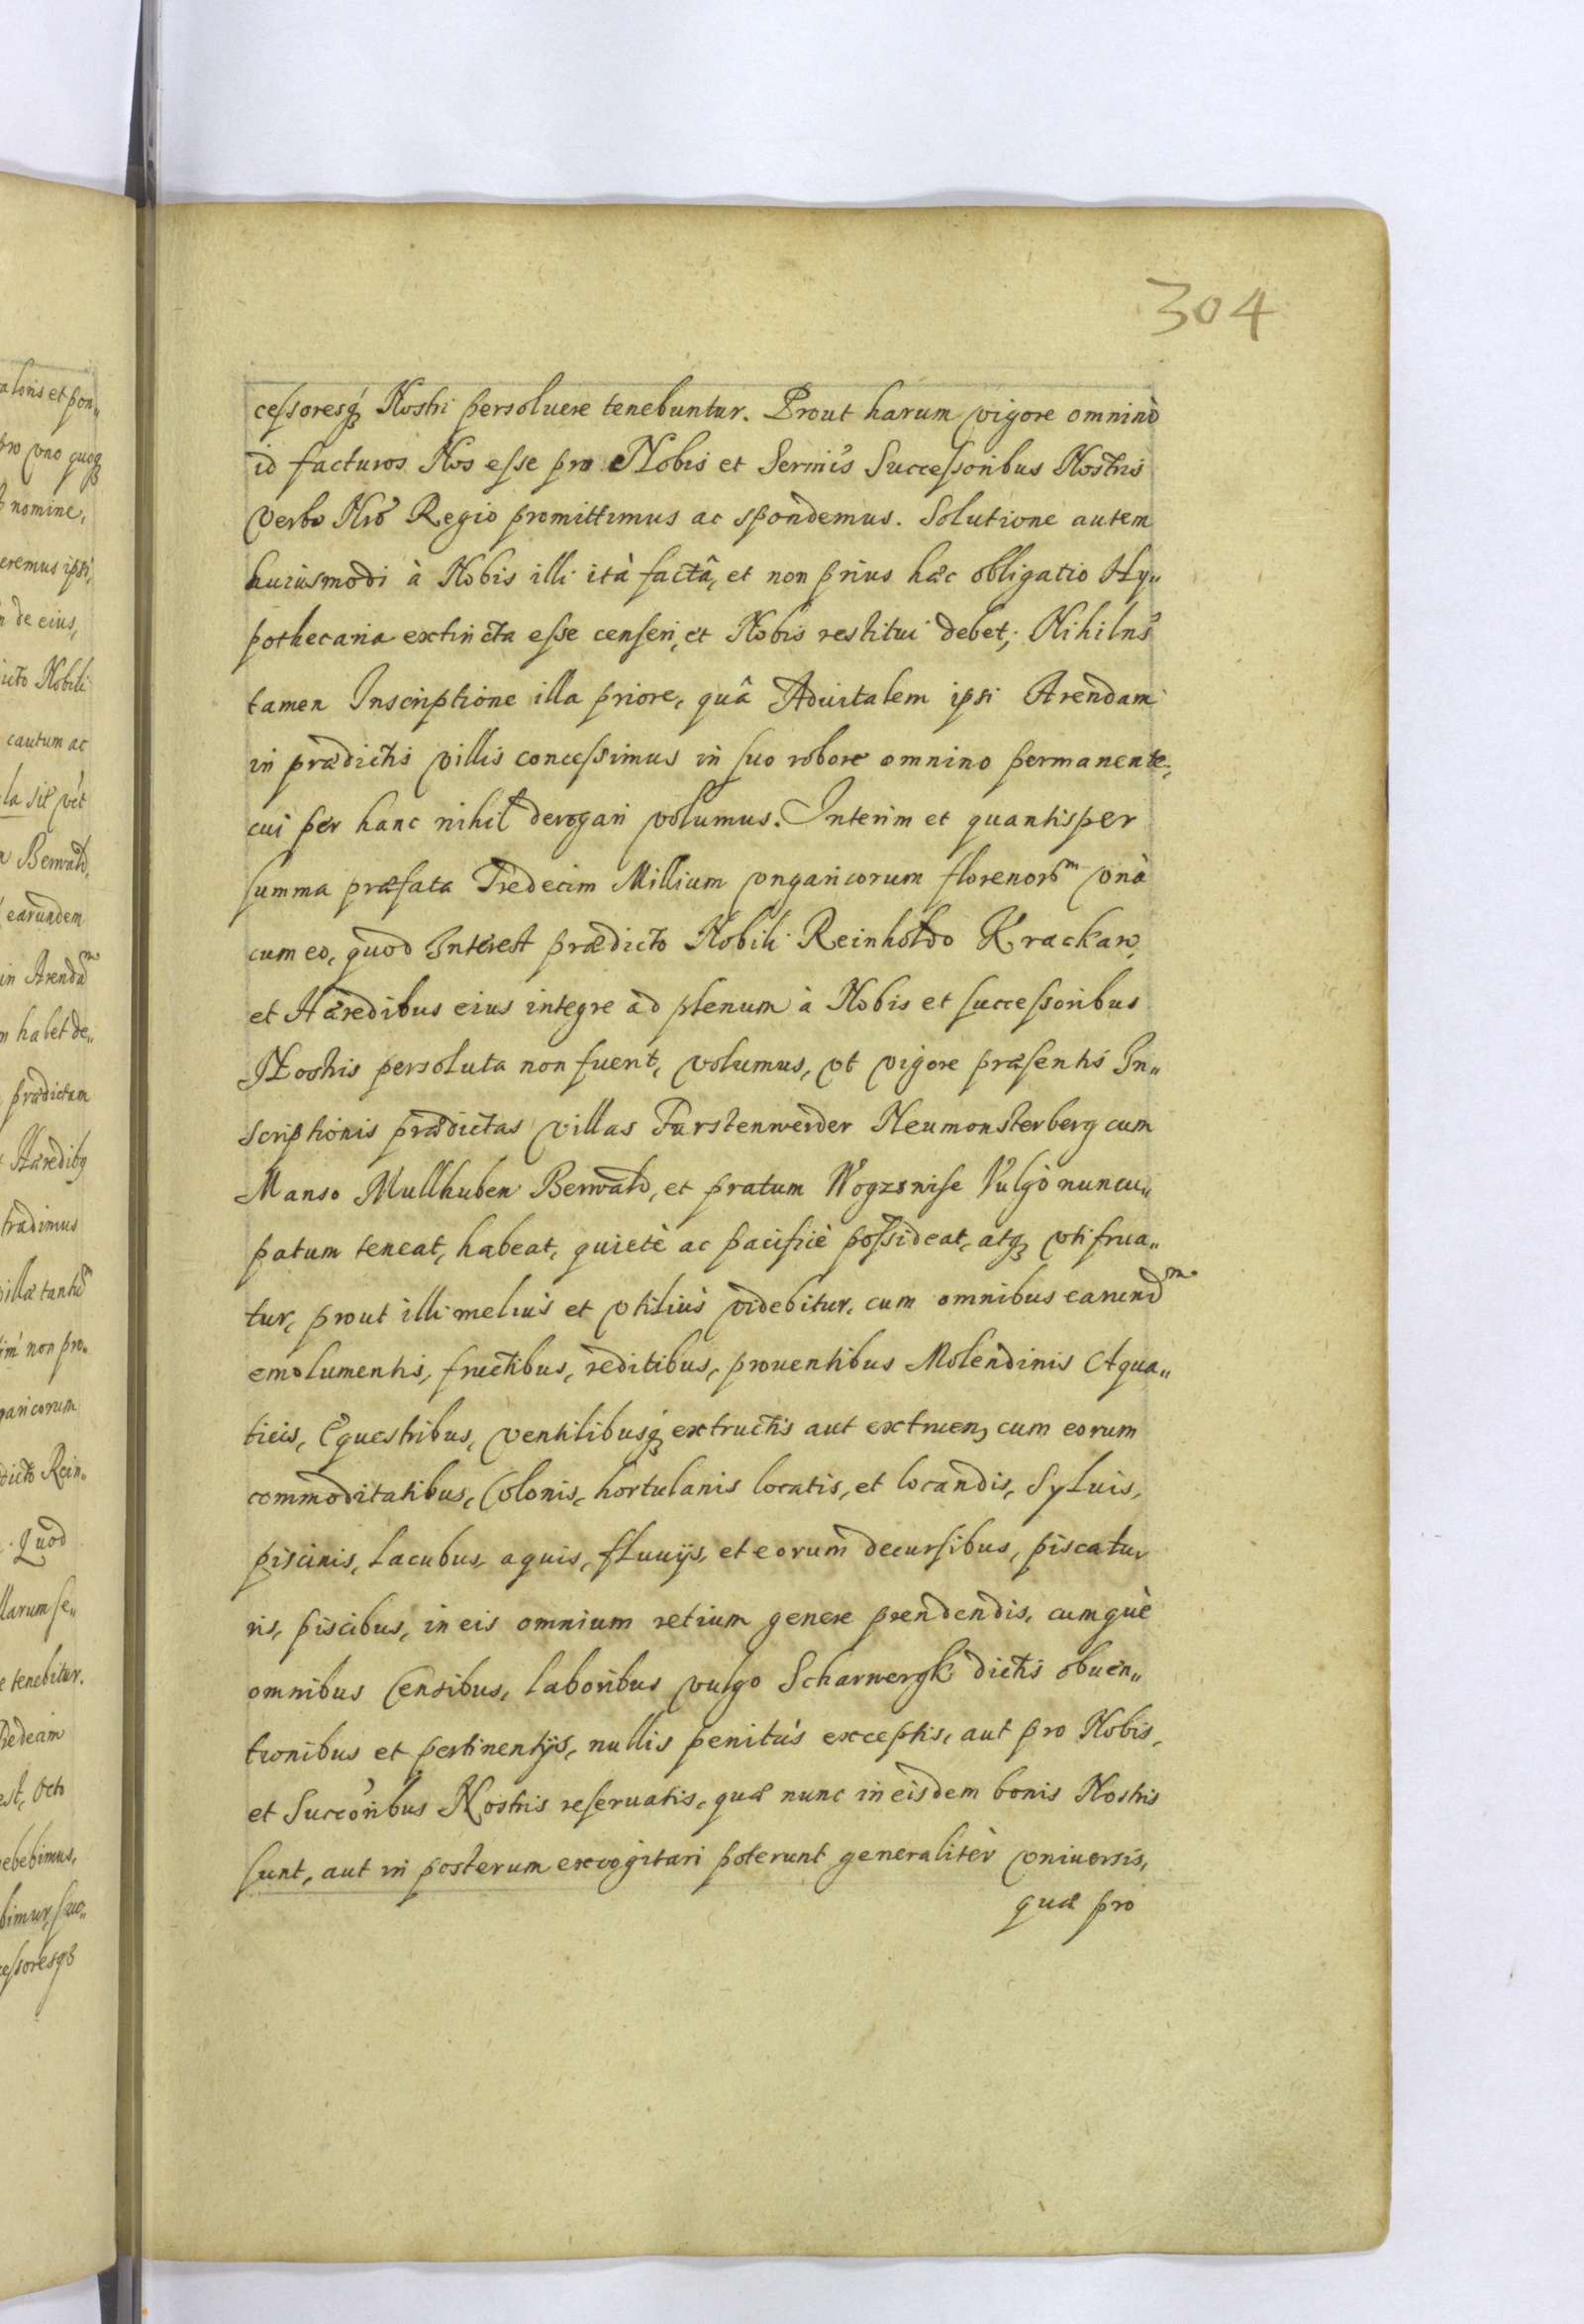 304
cessoresq́ Nostri persoluere tenebuntur. Prout harum vigore omninò
id facturos Nos esse pro Nobis et Sermis Successoribus Nostris
verbo Nro Regio promittimus ac spondemus. Solutione autem
huiusmodi à Nobis illi ità factâ, et non prius hæc obligatio Hy„
pothecaria extincta esse censeri, et Nobis restitui debet; Nihilns
tamen Inscriptione illa priore, quâ Aduitalem ipsi Arendam
in prædictis villis concessimus in suo robore omnino permanente,
cui per hanc nihil derogari volumus. Interim et quantisper
summa præfata Tredecim Millium vngaricorum florenorm vnà
cum eo, quod Interest prædicto Nobili Reinholdo Krackaw,
et Hæredibus eius integre ad plenum à Nobis et successoribus
Nostris persoluta non fuerit, volumus, vt vigore præsentis In„
scriptionis prædictas villas Furstenwerder Neumonsterberg cum
Manso Mullhuben Berwald, et pratum Wogzsnise Vulgò nuncu„
patum teneat, habeat, quietè ac pacificè possideat, atq vti frua„
tur, prout illi melius et vtilius videbitur, cum omnibus earundm
emolumentis, fructibus, reditibus, prouentibus Molendinis Aqua„
ticis, Equestribus, ventilibusq́ extructis aut extruen, cum eorum
commoditatibus, Colonis, hortulanis locatis, et locandis, Syluis,
piscinis, Lacubus, aquis, fluuijs, et eorum decursibus, piscatu„
ris, piscibus, in eis omnium retium genere prendendis, cumquè
omnibus Censibus, laboribus vulgo Scharwergk dictis obuen„
tionibus et pertinentijs, nullis penitús exceptis, aut pro Nobis,
et Succoribus Nostris reseruatis, quæ nunc in eisdem bonis Nostris
sunt, aut in posterum excogitari poterunt generalitèr vniuersis,
quæ pro